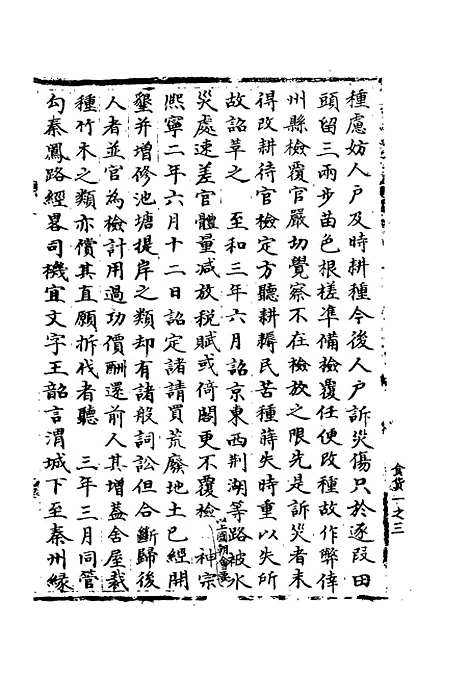 種慮妨人戶及時耕種今後人戶訴災傷只於逐段田
頭留三兩步苗色根槎準備檢覆任便改種故作弊倖
州縣檢覆官嚴切覺察不在檢放之限先是訴災者未
得改耕待官檢定方聽耕耨民苦種蒔失時重以失所
故詔革之 至和三年六月詔京東西荆湖等路被水
災處速差官體量減放税賦或倚閣更不覆檢以上國朝會要 神宗
熙寧二年六月十二日詔定諸請買荒廢地土已經開
墾并增修池塘堤岸之類却有諸般詞訟但合斷歸後
人者並官為檢計用過功價酬還前人其增蓋舍屋栽
種竹木之類亦償其直願拆伐者聽 三年三月同管
勾秦鳳路經畧司機宜文字王韶言渭城下至秦州緣
食貨一之三